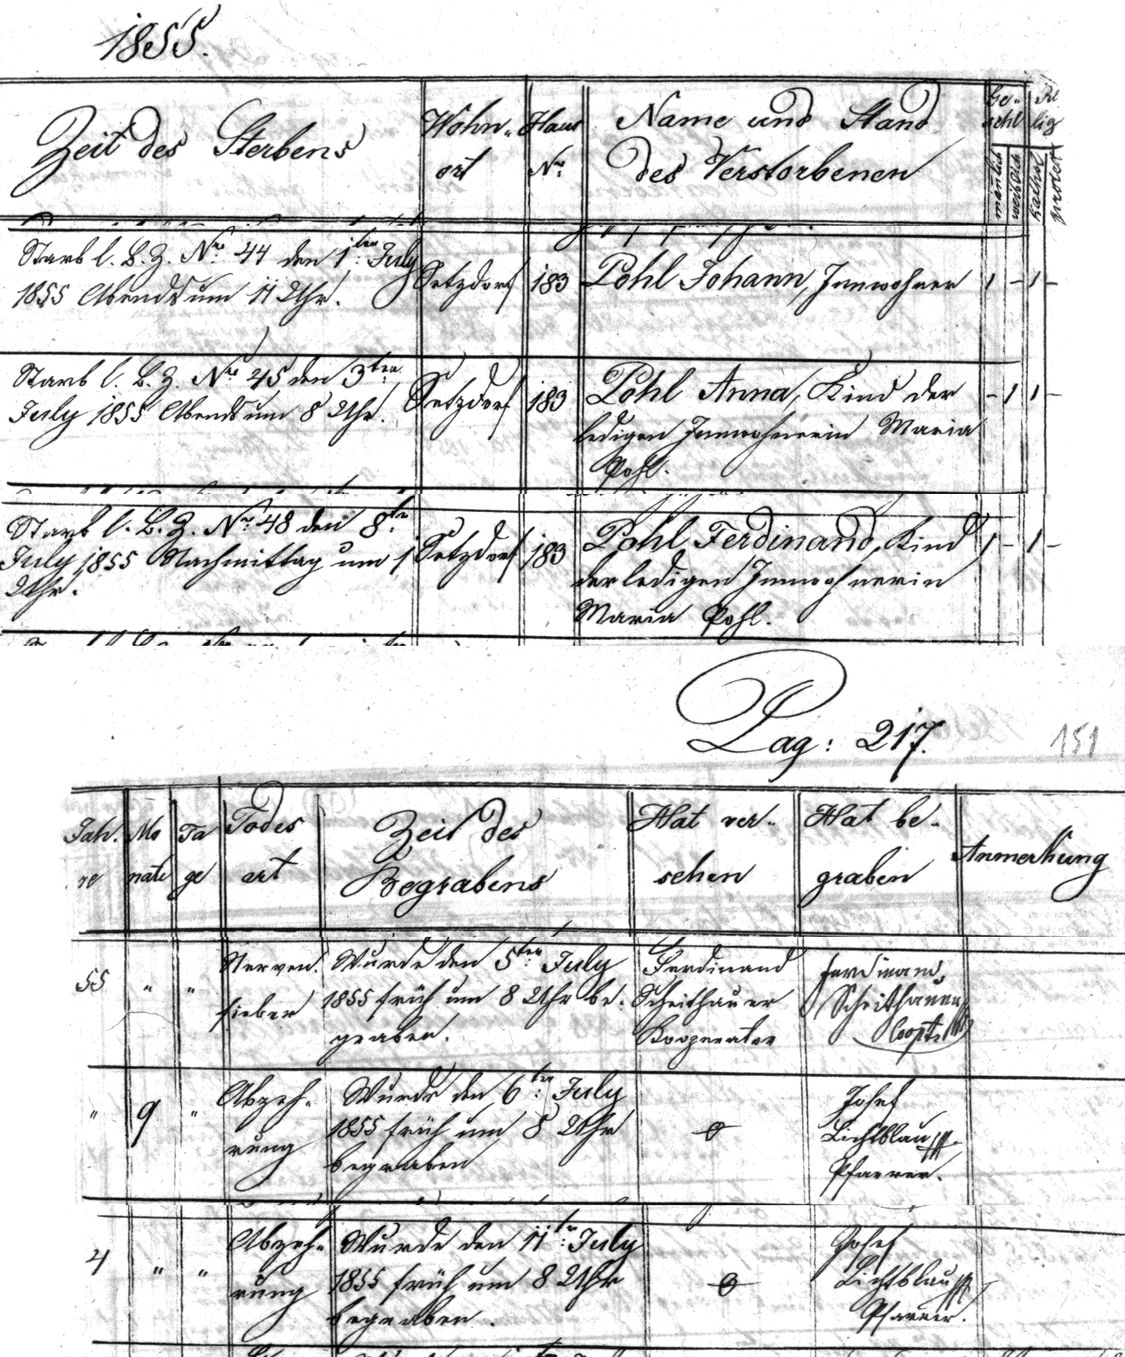 1855.
Zeit des Sterbens
Wohn-
ort
Haus
Nr.
Name und Stand
des Verstorbenen
Ge-
schl
Re
lig
mänlich
weiblich
kathol
protest
Starb l. B. Z. Nro 44 den 1ten July
1855 Abends um 11 Uhr.
Setzdorf
183
Pohl Johann, Innwohner
1 - 1 -
Starb l. B. Z. Nro 45 den 3ten
July 1855 Abends um 8 Uhr.
Setzdorf
183
Pohl Anna, Kind der
ledigen Innwohnerin Maria
Pohl.
- 1 1 -
Starb l. B. Z. Nro 48 den 8te
July 1855 Nachmittag um 1
Uhr.
Setzdorf
183
Pohl Ferdinand, Kind
der ledigen Innwohnerin
Maria Pohl.
1 - 1 -
Pag: 217.
151
Jah-
re
Mo
nate
Ta
ge
Todes
art
Zeit des
Begrabens
Hat ver-
sehen
Hat be-
graben
Anmerkung
55 " "
Nerven-
fieber
Wurde den 5ten July
1855 früh um 8 Uhr be-
graben.
Ferdinand
Scheithauer
Kooperator
Ferdinand
Scheithauer
Coopt.
" 9 "
Abzeh-
rung
Wurde den 6te July
1855 früh um 8 Uhr
begraben
Josef
Lichtblau
Pfarrer.
4 " "
Abzeh-
rung
Wurde den 11te July
1855 früh um 8 Uhr
begraben.
Josef
Lichtblau
Pfarrer.